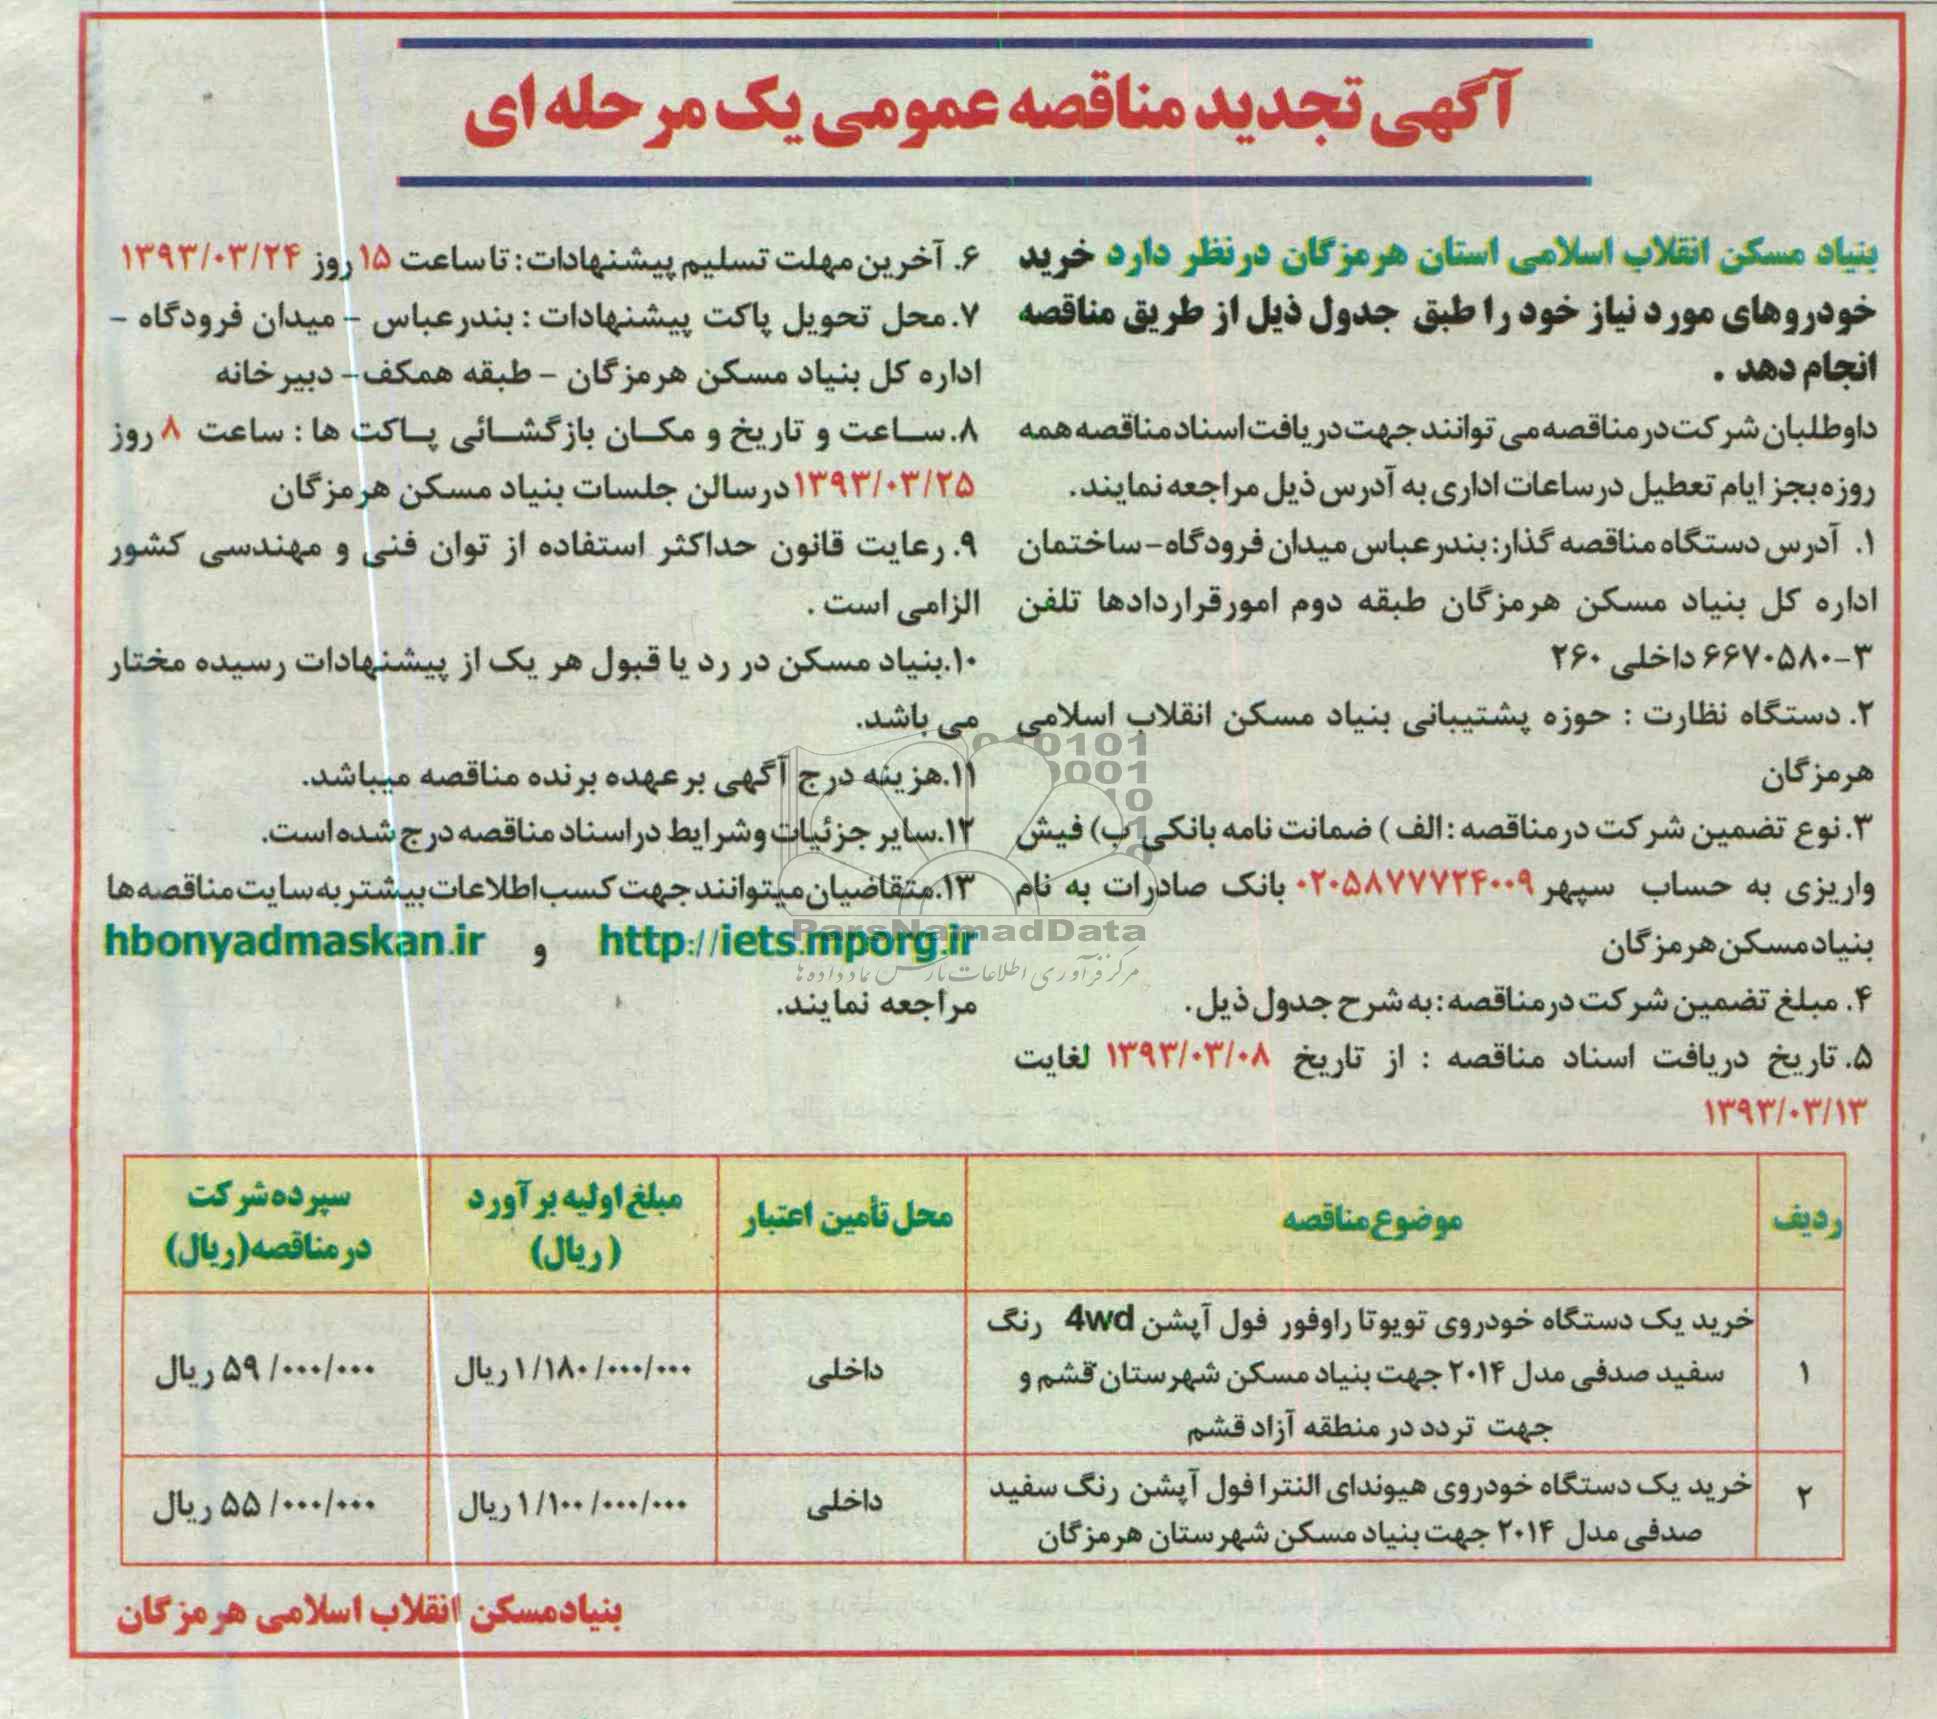 آگهی تجدید مناقصه عمومی یک مرحله ای
بنیاد مسکن انقلاب اسلامی استان هرمزگان درنظر دارد خرید
خودروهای مورد نیاز خود را طبق جدول ذیل از طریق مناقصه
انجام دهد .
داوطلبان شرکت در مناقصه می توانند جهت دریافت اسناد مناقصه همه
روزه بجز ایام تعطیل در ساعات اداری به آدرس ذیل مراجعه نمایند.
۱. آدرس دستگاه مناقصه گذار: بندرعباس میدان فرودگاه-ساختمان
اداره کل بنیاد مسکن هرمزگان طبقه دوم امورقراردادها تلفن
۳-۶۶۷۰۵۸۰ داخلی ۲۶۰
۲. دستگاه نظارت : حوزه پشتیبانی بنیاد مسکن انقلاب اسلامی
هرمزگان
۳. نوع تضمین شرکت درمناقصه : الف ) ضمانت نامه بانکی ب) فیش
واریزی به حساب سپهر ۰۲۰۵۸۷۷۷۲۴۰۰۹ بانک صادرات به نام
بنیادمسکن هرمزگان
۴. مبلغ تضمین شرکت درمناقصه : به شرح جدول ذیل.
۵. تاریخ دریافت اسناد مناقصه : از تاریخ ۱۳۹۳/۰۳/۰۸ لغایت
۱۳۹۳/۰۳/۱۳
۶. آخرین مهلت تسلیم پیشنهادات : تا ساعت ۱۵ روز ۱۳۹۳/۰۳/۲۴
۷. محل تحویل پاکت پیشنهادات : بندرعباس - میدان فرودگاه -
اداره کل بنیاد مسکن هرمزگان - طبقه همکف- دبیرخانه
۸. ساعت و تاریخ و مکان بازگشائی پاکت ها : ساعت ۸ روز
۱۳۹۳/۰۳/۲۵ درسالن جلسات بنیاد مسکن هرمزگان
۹. رعایت قانون حداکثر استفاده از توان فنی و مهندسی کشور
الزامی است .
۱۰. بنیاد مسکن در رد یا قبول هر یک از پیشنهادات رسیده مختار
می باشد.
۱۱. هزینه درج آگهی برعهده برنده مناقصه میباشد.
۱۲. سایر جزئیات وشرایط در اسناد مناقصه درج شده است.
۱۳. متقاضیان میتوانند جهت کسب اطلاعات بیشتر به سایت مناقصه ها
http://iets.mporg.ir و hbonyadmaskan.ir
مراجعه نمایند.
ParsNamadData
مرکز فرآوری اطلاعات پارس نماد داده ها
ردیف موضوع مناقصه محل تأمین اعتبار مبلغ اولیه برآورد (ریال) سپرده شرکت درمناقصه (ریال)
خرید یک دستگاه خودروی تویوتا راوفور فول آپشن 4wd رنگ
۱ سفید صدفی مدل ۲۰۱۴ جهت بنیاد مسکن شهرستان قشم و داخلی ۱/۱۸۰/۰۰۰/۰۰۰ ریال ۵۹/۰۰۰/۰۰۰ ریال
جهت تردد در منطقه آزاد قشم
۲ خرید یک دستگاه خودروی هیوندای النترا فول آپشن رنگ سفید داخلی ۱/۱۰۰/۰۰۰/۰۰۰ ریال ۵۵/۰۰۰/۰۰۰ ریال
صدفی مدل ۲۰۱۴ جهت بنیاد مسکن شهرستان هرمزگان
بنیادمسکن انقلاب اسلامی هرمزگان